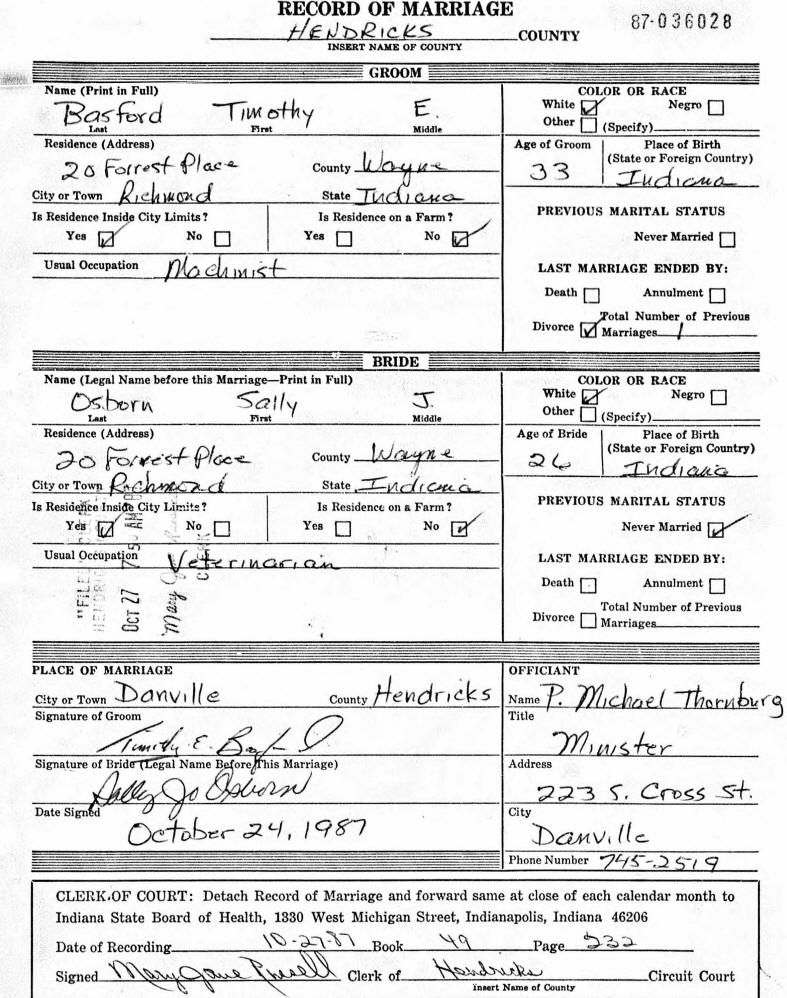 RECORD OF MARRIAGE
HENDRICKS COUNTY 87-036028
INSERT NAME OF COUNTY
GROOM
Name (Print in Full)
Basford Timothy E.
Last First Middle
COLOR OR RACE
White ☑ Negro ☐
Other ☐ (Specify)
Residence (Address)
20 Forrest Place County Wayne
City or Town Richmond State Indiana
Age of Groom Place of Birth
(State or Foreign Country)
33 Indiana
Is Residence Inside City Limits? Is Residence on a Farm?
Yes ☑ No ☐ Yes ☐ No ☑
Usual Occupation Machinist
PREVIOUS MARITAL STATUS
Never Married ☐
LAST MARRIAGE ENDED BY:
Death ☐ Annulment ☐
Total Number of Previous
Divorce ☑ Marriages 1
BRIDE
Name (Legal Name before this Marriage—Print in Full)
Osborn Sally J.
Last First Middle
COLOR OR RACE
White ☑ Negro ☐
Other ☐ (Specify)
Residence (Address)
20 Forrest Place County Wayne
City or Town Richmond State Indiana
Age of Bride Place of Birth
(State or Foreign Country)
26 Indiana
Is Residence Inside City Limits? Is Residence on a Farm?
Yes ☑ No ☐ Yes ☐ No ☑
Usual Occupation Veterinarian
"FILED
HENDRIC
OCT 27 7 50 AM
Mary J
PREVIOUS MARITAL STATUS
Never Married ☑
LAST MARRIAGE ENDED BY:
Death ☐ Annulment ☐
Total Number of Previous
Divorce ☐ Marriages
PLACE OF MARRIAGE
City or Town Danville County Hendricks
Signature of Groom
Timothy E. Basford
Signature of Bride (Legal Name Before This Marriage)
Sally Jo Osborn
Date Signed
October 24, 1987
OFFICIANT
Name P. Michael Thornburg
Title
Minister
Address
223 S. Cross St.
City
Danville
Phone Number 745-2519
CLERK OF COURT: Detach Record of Marriage and forward same at close of each calendar month to
Indiana State Board of Health, 1330 West Michigan Street, Indianapolis, Indiana 46206
Date of Recording 10-27-87 Book 49 Page 232
Signed Mary Jane Russell Clerk of Hendricks Circuit Court
Insert Name of County